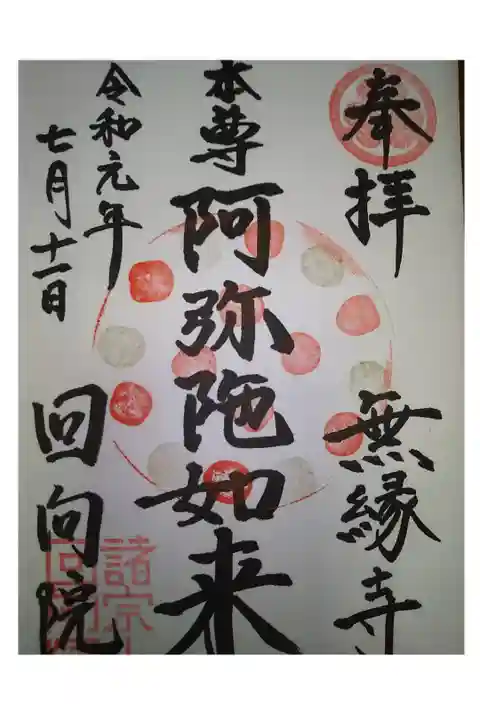 奉拝
無縁寺
本尊
阿弥陀如来
令和元年
七月十一日
回向院
諸宗